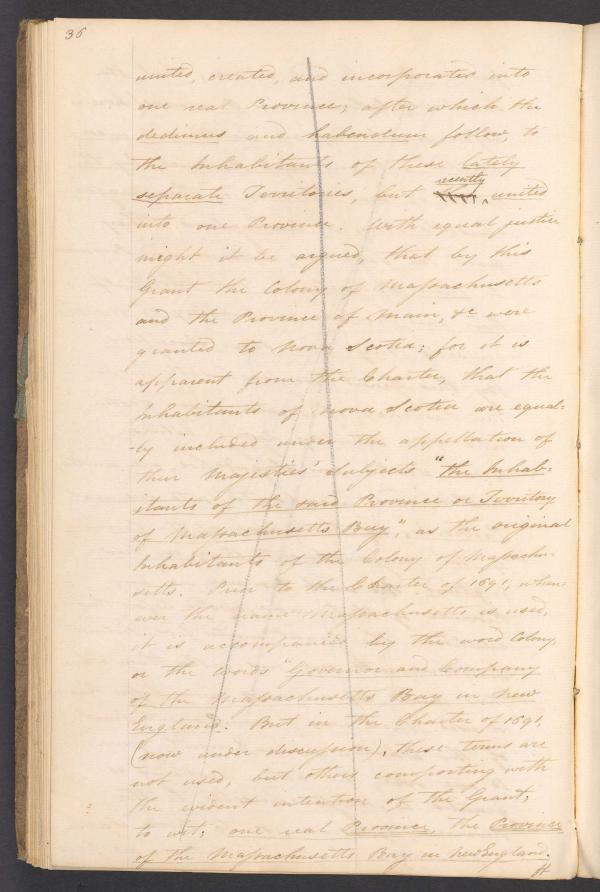 36
united, created, and incorporated into
one real Province; after which the
dedimus and habendum follow, to
the Inhabitants of these lately
separate Territories, but recently united
into one Province. With equal justice
might it be argued, that by this
Grant the Colony of Massachusetts
and the Province of Main, &c were
granted to Nova Scotia; for it is
apparent from the Charter, that the
Inhabitants of Nova Scotia are equal=
-ly included under the appellation of
their Majesties' subjects "the Inhab=
itants of the said Province or Territory
of Massachusetts Bay", as the original
Inhabitants of the Colony of Massachu=
setts. Prior to the Charter of 1691, when=
ever the name Massachusetts is used,
it is accompanied by the word Colony,
or the words "Governor and Company
of the Massachusetts Bay in New
England. But in the Charter of 1691,
(now under discussion), these terms are
not used, but others comporting with
the evident intention of the Grant;
to wit; one real Province, the Province
of the Massachusetts Bay in New England.